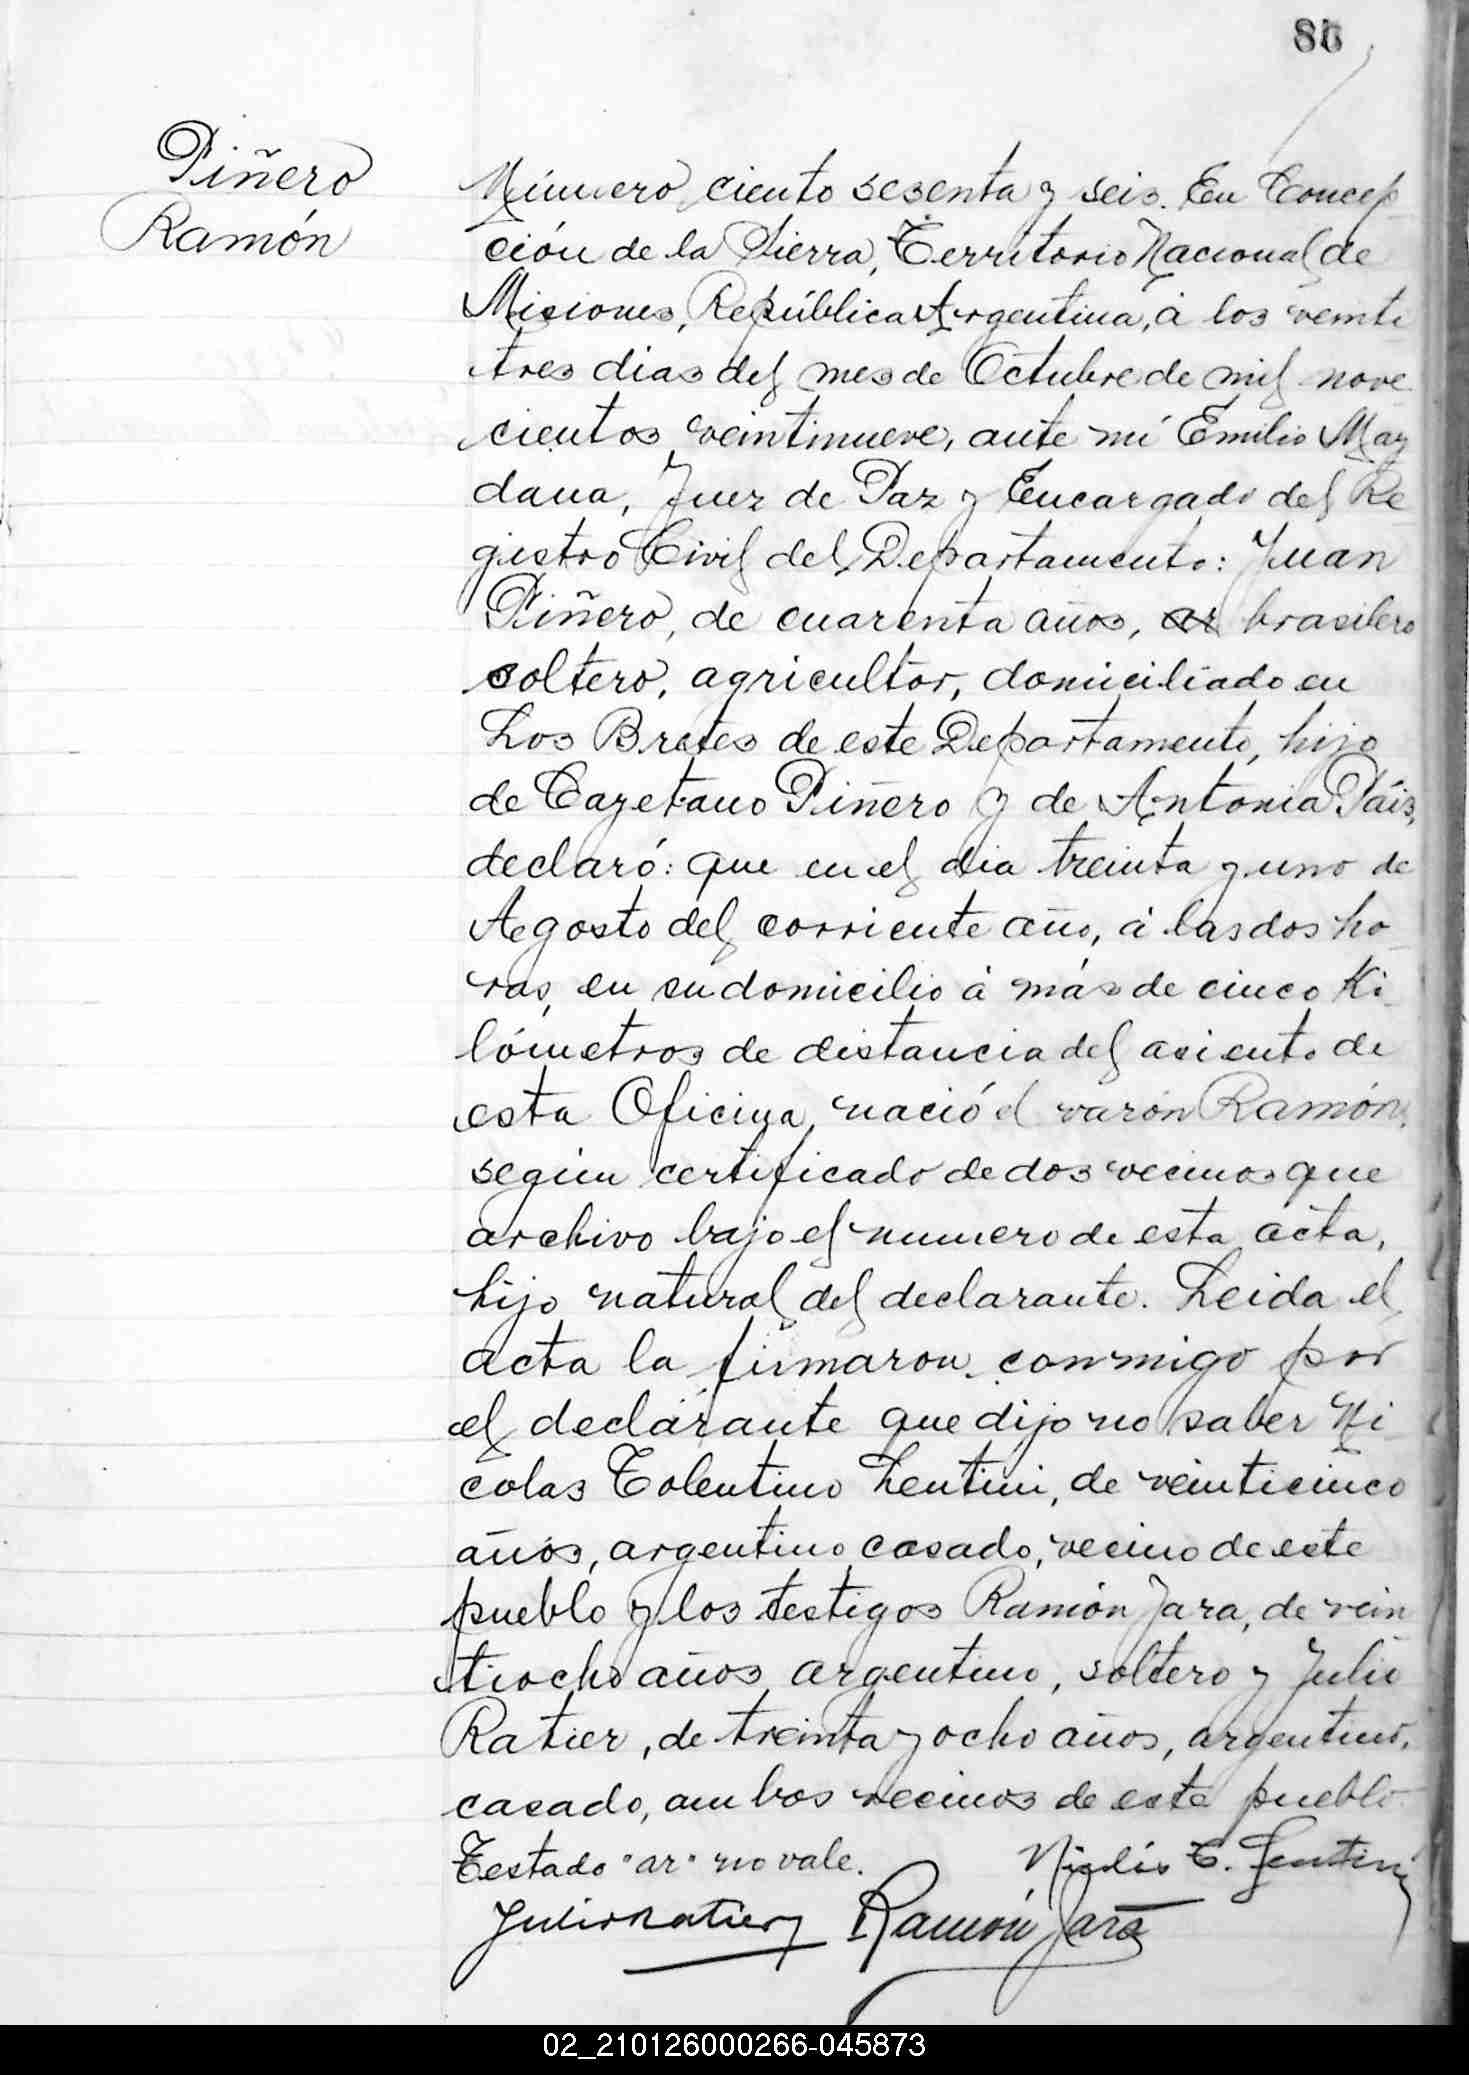 86
Piñero
Ramón
Número ciento sesenta y seis. En Concep-
ción de la Sierra, Territorio Nacional de
Misiones, República Argentina, á los veinti
tres dias del mes de Octubre de mil nove
cientos veintinueve, ante mí Emilio May
dana, Juez de Paz y Encargado del Re-
gistro Civil del Departamento: Juan
Piñero, de cuarenta años, ar brasilero
soltero, agricultor, domiciliado en
Los Bretes de este Departamento, hijo
de Cayetano Piñero y de Antonia Páis,
declaró: que en el dia treinta y uno de
Agosto del corriente año, á las dos ho-
ras, en su domicilio á más de cinco Ki-
lómetros de distancia del asiento de
esta Oficina, nació el varón Ramón,
según certificado de dos vecinos que
archivo bajo el numero de esta acta,
hijo natural del declarante. Leida el
acta la firmaron conmigo por
el declarante que dijo no saber Ni-
colas Tolentino Lentini, de veinticinco
años, argentino, casado, vecino de este
pueblo y los testigos Ramón Jara, de vein
tiocho años, argentino, soltero y Julio
Ratier, de treinta y ocho años, argentino,
casado, ambos vecinos de este pueblo.
Testado "ar" no vale. Nicolás T. Lentini
Julio Ratier Ramón Jara
02_210126000266-045873